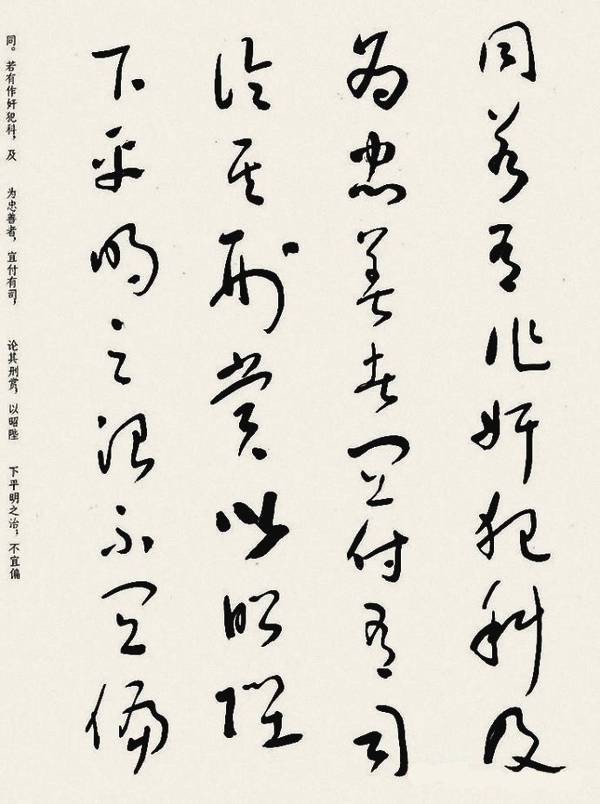 同若有作奸犯科及
为忠善者宜付有司
论其刑赏以昭陛
下平明之治不宜偏
同。若有作奸犯科，及
为忠善者，宜付有司，
论其刑赏，以昭陛
下平明之治，不宜偏